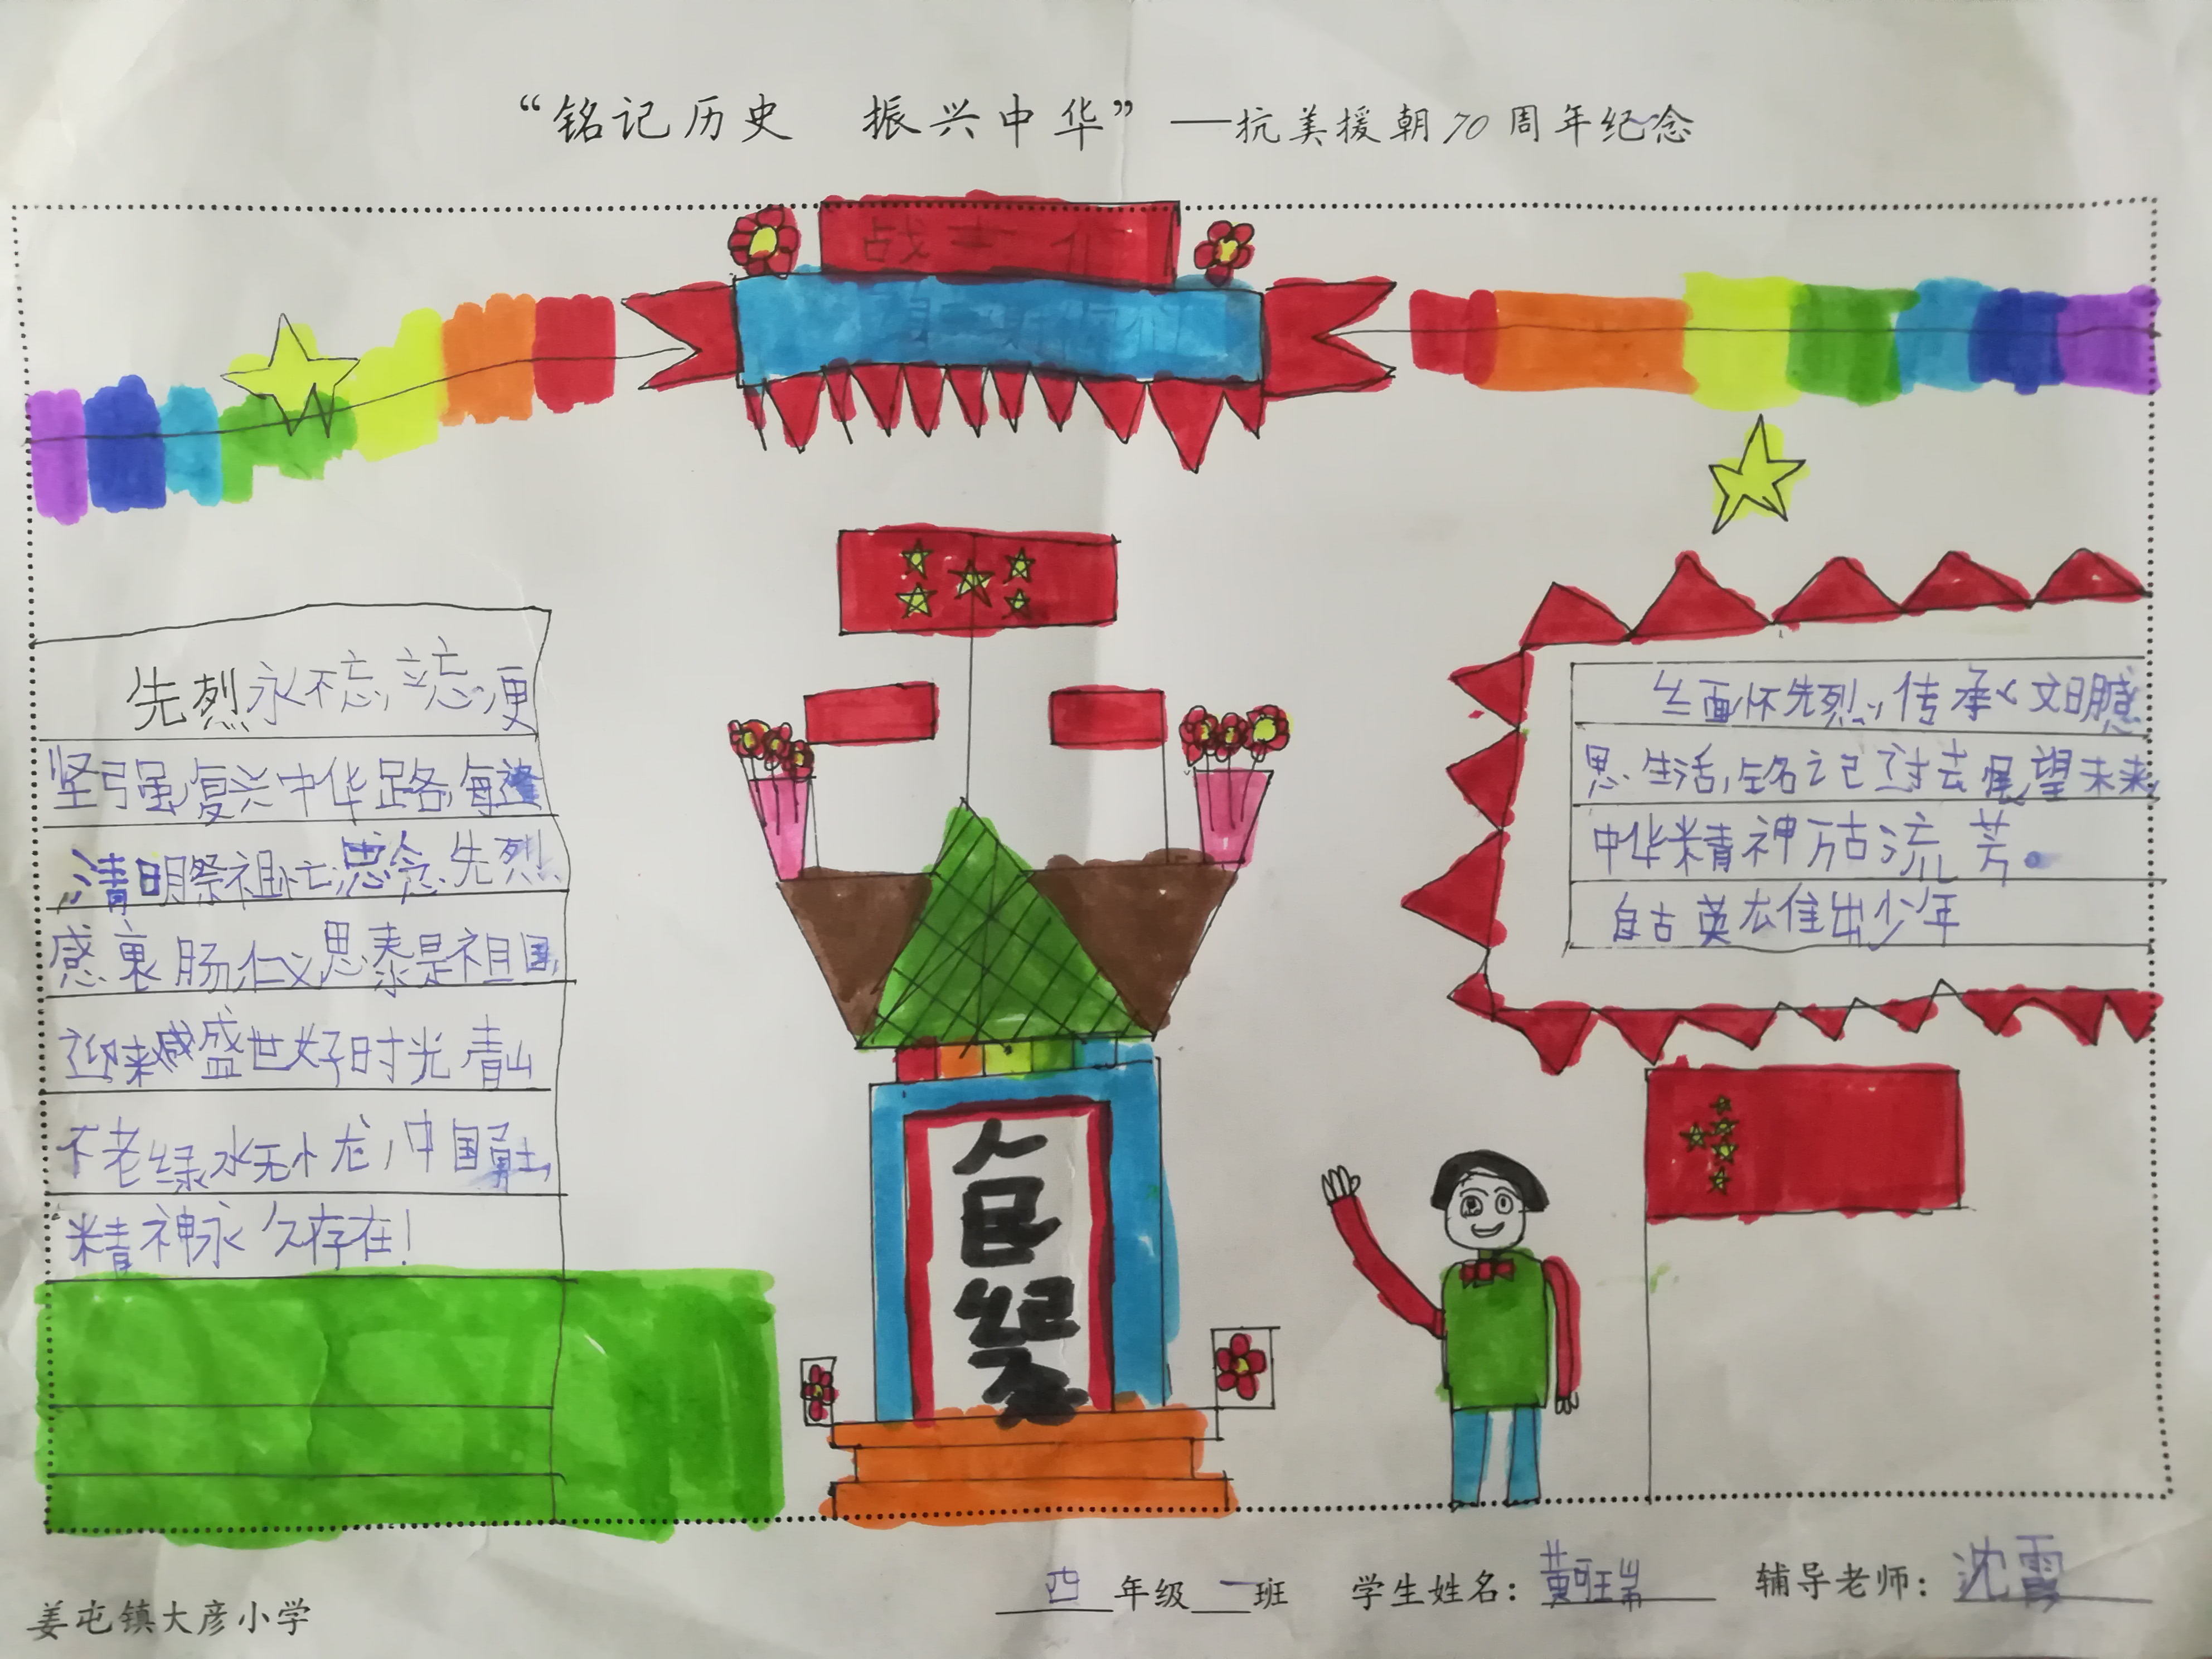 “铭记历史 振兴中华”——抗美援朝70周年纪念
战士们
先烈永不忘,立志便
坚强,复兴中华路,每逢
清明祭祖忙,思念先烈
感衷肠,仁义思泰是祖国,
迎来盛世好时光,青山
不老绿水无小龙,中国勇士,
精神永久存在!
缅怀先烈,传承文明感
思生活,铭记过去展望未来,
中华精神万古流芳。
自古英雄出少年
纪念
四年级一班 学生姓名:黄珂瑞 辅导老师:沈霞
姜屯镇大彦小学